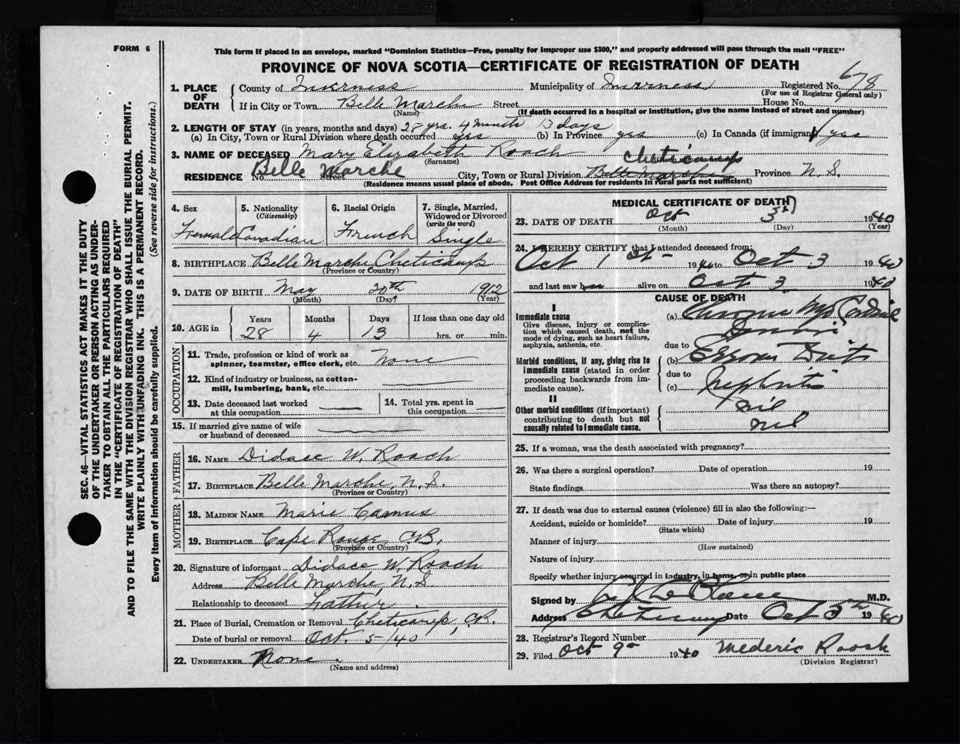 FORM 6
This form if placed in an envelope, marked "Dominion Statistics—Free, penalty for improper use $300," and properly addressed will pass through the mail "FREE"
PROVINCE OF NOVA SCOTIA—CERTIFICATE OF REGISTRATION OF DEATH
1. PLACE OF DEATH County of Inverness Municipality of Inverness Registered No. 678
(For use of Registrar General only)
If in City or Town Belle Marche Street House No.
(Name) (If death occurred in a hospital or institution, give the name instead of street and number)
2. LENGTH OF STAY (in years, months and days) 28 yrs. 4 month 13 days
(a) In City, Town or Rural Division where death occurred yes (b) In Province yes (c) In Canada (if immigrant) yes
3. NAME OF DECEASED Mary Elizabeth Roach Cheticamp
(Surname)
RESIDENCE No. Belle Marche Street City, Town or Rural Division Belle Marche Province N. S.
(Residence means usual place of abode. Post Office Address for residents in rural parts not sufficient)
4. Sex Female
5. Nationality (Citizenship) Canadian
6. Racial Origin French
7. Single, Married, Widowed or Divorced (write the word) Single
8. BIRTHPLACE Belle Marche Cheticamp
(Province or Country)
9. DATE OF BIRTH May 20th 1912
(Month) (Day) (Year)
10. AGE in Years Months Days If less than one day old
28 4 13 hrs. or min.
OCCUPATION
11. Trade, profession or kind of work as spinner, teamster, office clerk, etc. None
12. Kind of industry or business, as cotton-mill, lumbering, bank, etc.
13. Date deceased last worked at this occupation
14. Total yrs. spent in this occupation
15. If married give name of wife or husband of deceased
FATHER
16. NAME Didace W. Roach
17. BIRTHPLACE Belle Marche, N. S.
(Province or Country)
MOTHER
18. MAIDEN NAME Marie Camus
19. BIRTHPLACE Cape Rouge C.B.
(Province or Country)
20. Signature of informant Didace W. Roach
Address Belle Marche, N. S.
Relationship to deceased Father
21. Place of Burial, Cremation or Removal Cheticamp, C.B.
Date of burial or removal Oct. 5-/40
22. UNDERTAKER None
(Name and address)
MEDICAL CERTIFICATE OF DEATH
23. DATE OF DEATH Oct 3rd 1940
(Month) (Day) (Year)
24. I HEREBY CERTIFY that I attended deceased from
Oct 1st 1940 to Oct 3 1940
and last saw alive on Oct 3 1940
CAUSE OF DEATH
I
Immediate cause
Give disease, injury or complication which caused death, not the mode of dying, such as heart failure, asphyxia, asthenia, etc.
(a) Chronic
due to
Morbid conditions, if any, giving rise to immediate cause (stated in order proceeding backwards from immediate cause).
(b)
due to
(c) Nephritis
II
Other morbid conditions (if important) contributing to death but not causally related to immediate cause.
nil
nil
25. If a woman, was the death associated with pregnancy?
26. Was there a surgical operation? Date of operation 19
State findings Was there an autopsy?
27. If death was due to external causes (violence) fill in also the following:—
Accident, suicide or homicide? Date of injury 19
(State which)
Manner of injury
(How sustained)
Nature of injury
Specify whether injury occurred in industry, in home, or in public place
Signed by M.D.
Address Cheticamp Date Oct 3rd 1940
28. Registrar's Record Number
29. Filed Oct 9 1940 Mederic Roach
(Division Registrar)
SEC. 46—VITAL STATISTICS ACT MAKES IT THE DUTY
OF THE UNDERTAKER OR PERSON ACTING AS UNDER-
TAKER TO OBTAIN ALL THE PARTICULARS REQUIRED
IN THE "CERTIFICATE OF REGISTRATION OF DEATH"
AND TO FILE THE SAME WITH THE DIVISION REGISTRAR WHO SHALL ISSUE THE BURIAL PERMIT.
WRITE PLAINLY WITH UNFADING INK. THIS IS A PERMANENT RECORD.
Every item of Information should be carefully supplied. (See reverse side for instructions.)